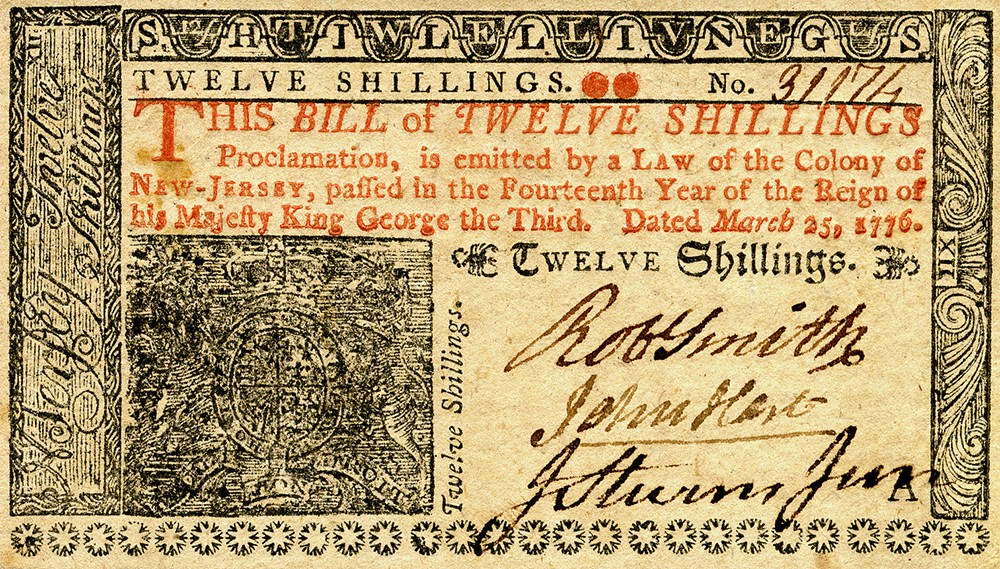 TWELVE SHILLINGS. No. 31174
THIS BILL of TWELVE SHILLINGS
Proclamation, is emitted by a LAW of the Colony of
NEW-JERSEY, paſſed in the Fourteenth Year of the Reign of
his Majeſty King George the Third. Dated March 25, 1776.
TWELVE Shillings.
Robt Smith
John Hart
Jun
A
Twelve Shillings.
N Jerſey Twelve
Shillings
XII
XII